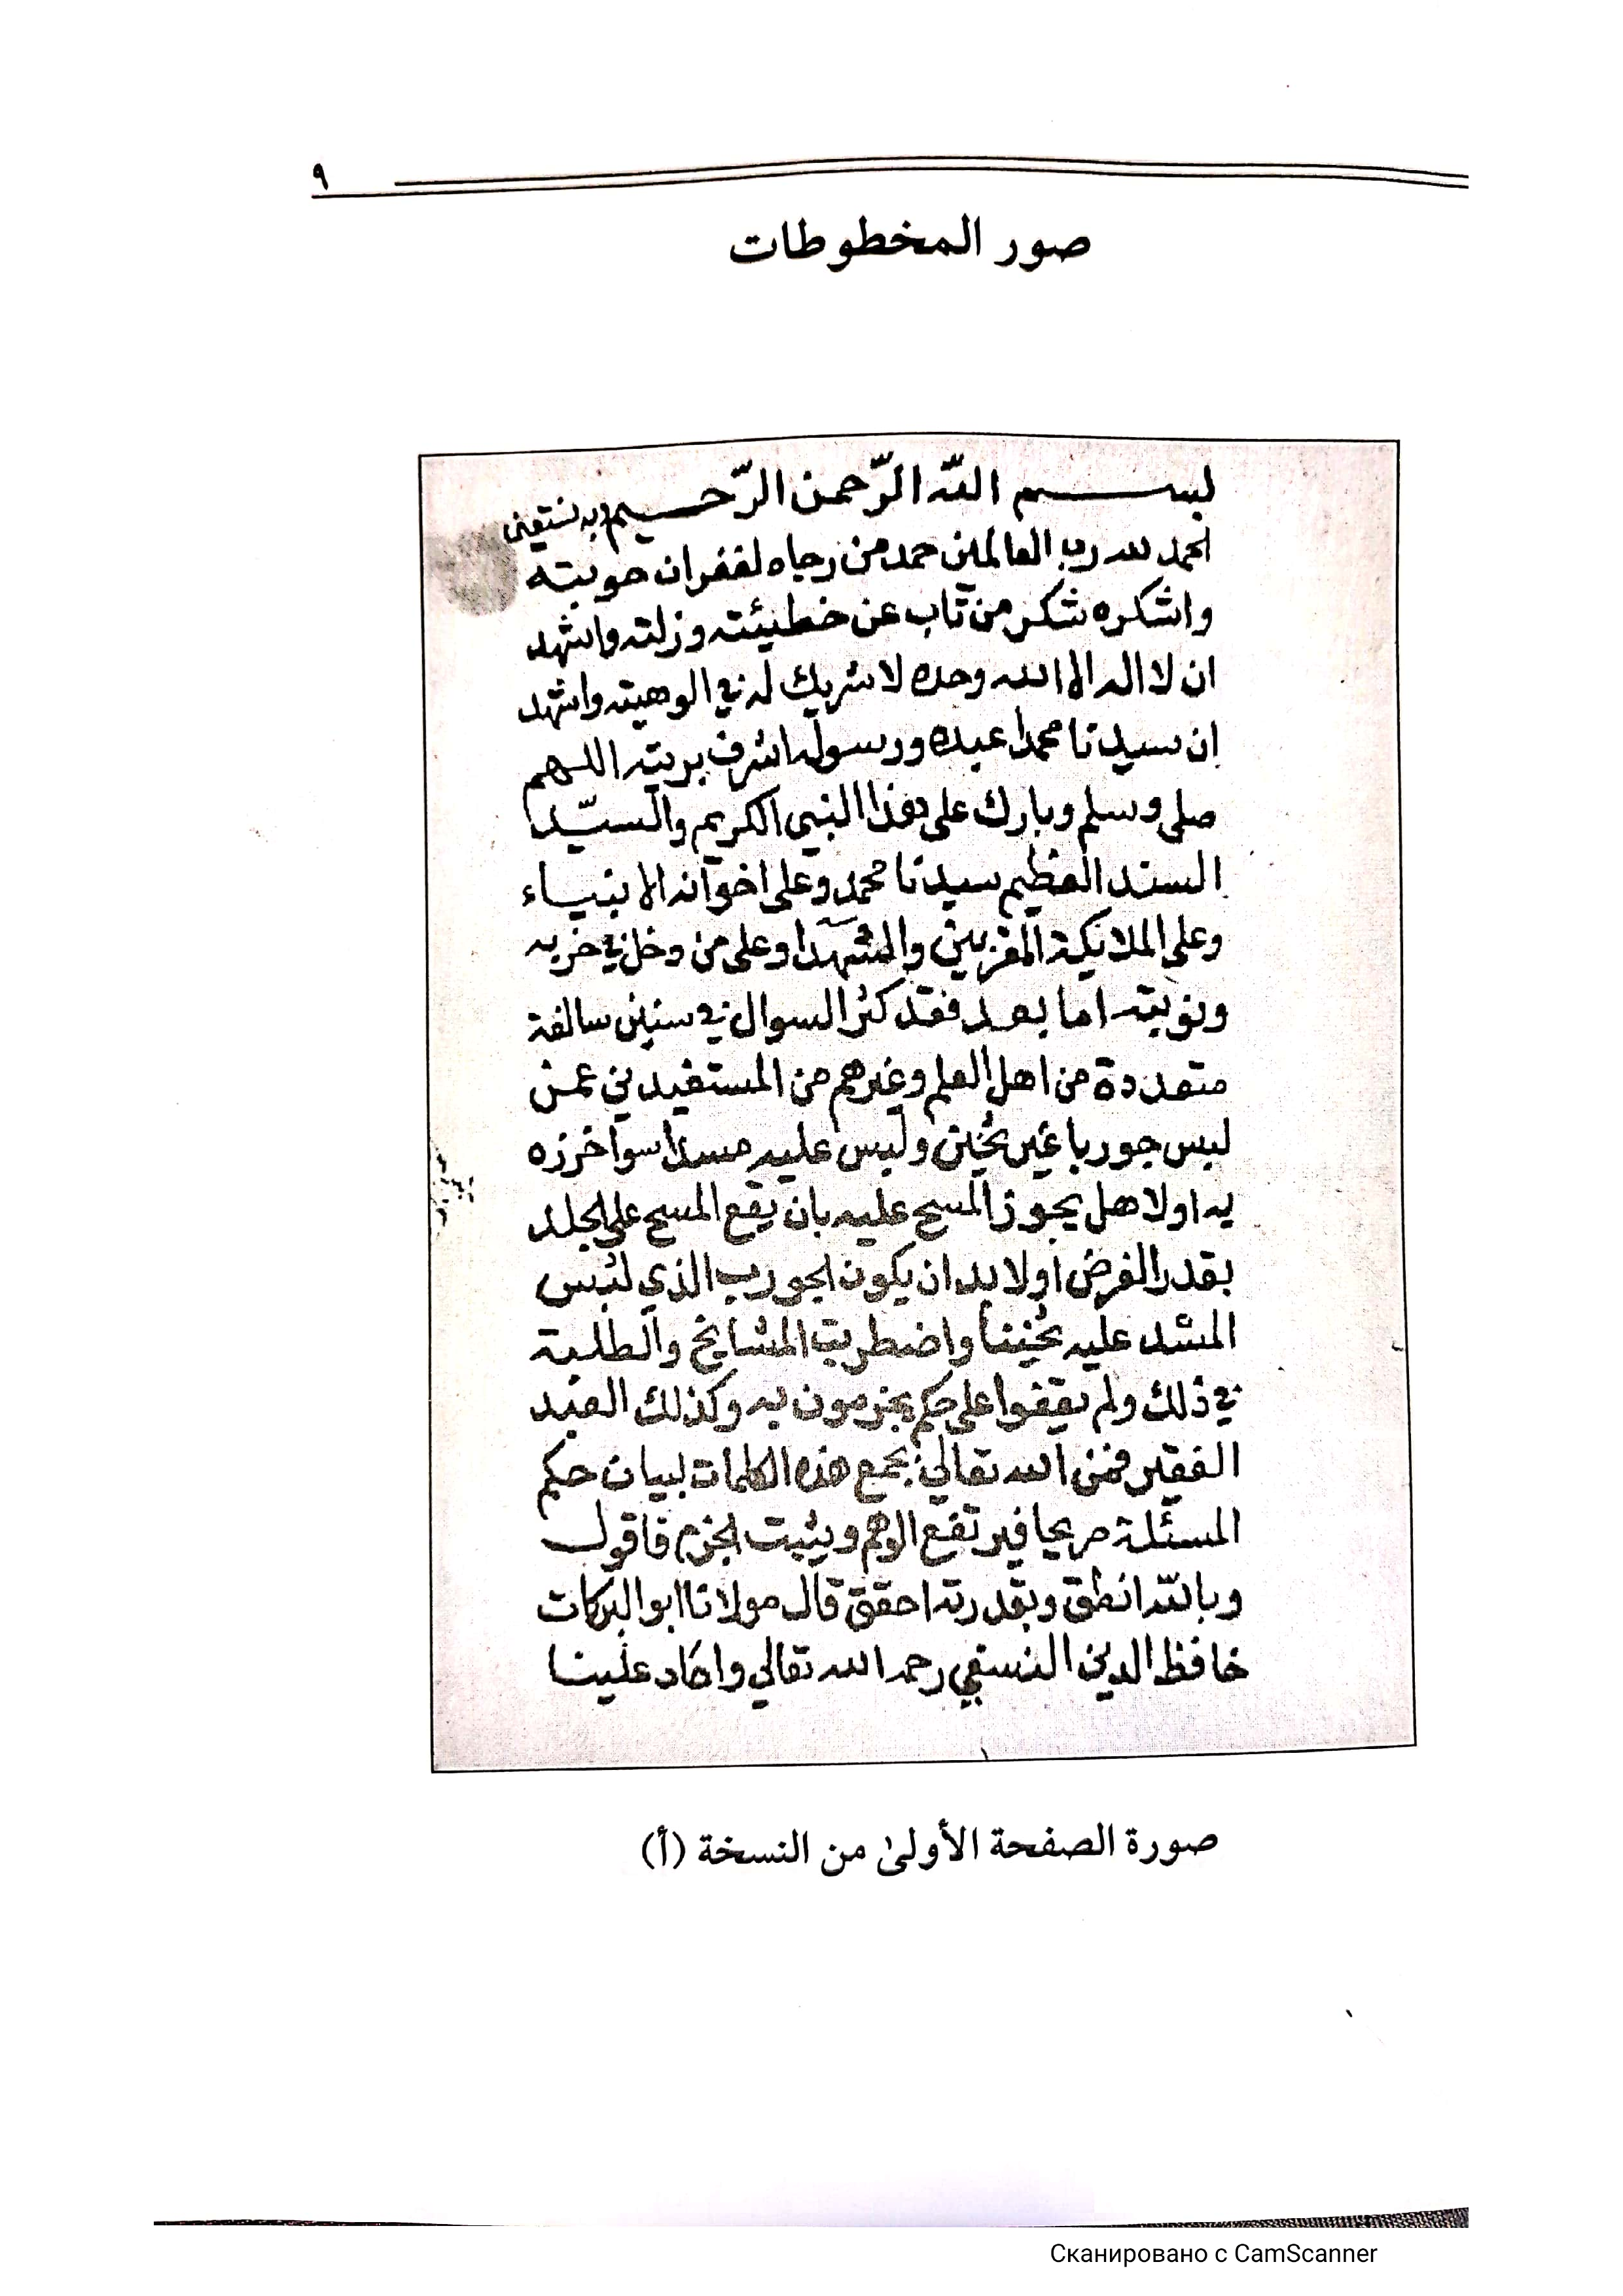 ٩
صور المخطوطات
بسم الله الرّحمن الرّحيم وبه نستعين
الحمد لله رب العالمين حمد من رجاه لغفران حوبته
واشكره شكر من تاب عن خطيئته وزلته واشهد
ان لا اله الا الله وحده لا شريك له في الوهيته واشهد
ان سيدنا محمدا عبده ورسوله اشرف بريته اللهم
صلى وسلم وبارك على هذا النبي الكريم والسيّد
السند العظيم سيدنا محمد وعلى اخوانه الانبياء
وعلى الملائكة المقربين والشهدا وعلى من دخل في حزبه
ونوبته اما بعد فقد كثر السوال في سنين سالفة
متعددة من اهل العلم وغيرهم من المستفيدين عمن
لبس جوربا غير ثخين ولبس عليه مسدا سوا خرزه
به اولا هل يجوز المسح عليه بان يقع المسح على الجلد
بقدر الفرض اولا بد ان يكون الجورب الذي لبس
المشد عليه ثخينا واضطربت المشايخ والطلبة
في ذلك ولم يقفوا على حكم يجزمون به وكذلك العبد
الفقير فمن الله تعالي بجمع هذه الكلمات لبيان حكم
المسئلة صريحا فيرتفع الوهم ويثبت الجزم فاقول
وبالله انطق وبقدرته احقق قال مولانا ابو البركات
حافظ الدين النسفي رحمه الله تعالي واعاد علينا
صورة الصفحة الأولىٰ من النسخة (أ)
Сканировано с CamScanner